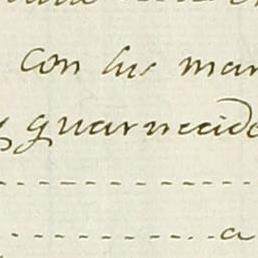 con sus man
y guarnecido
a